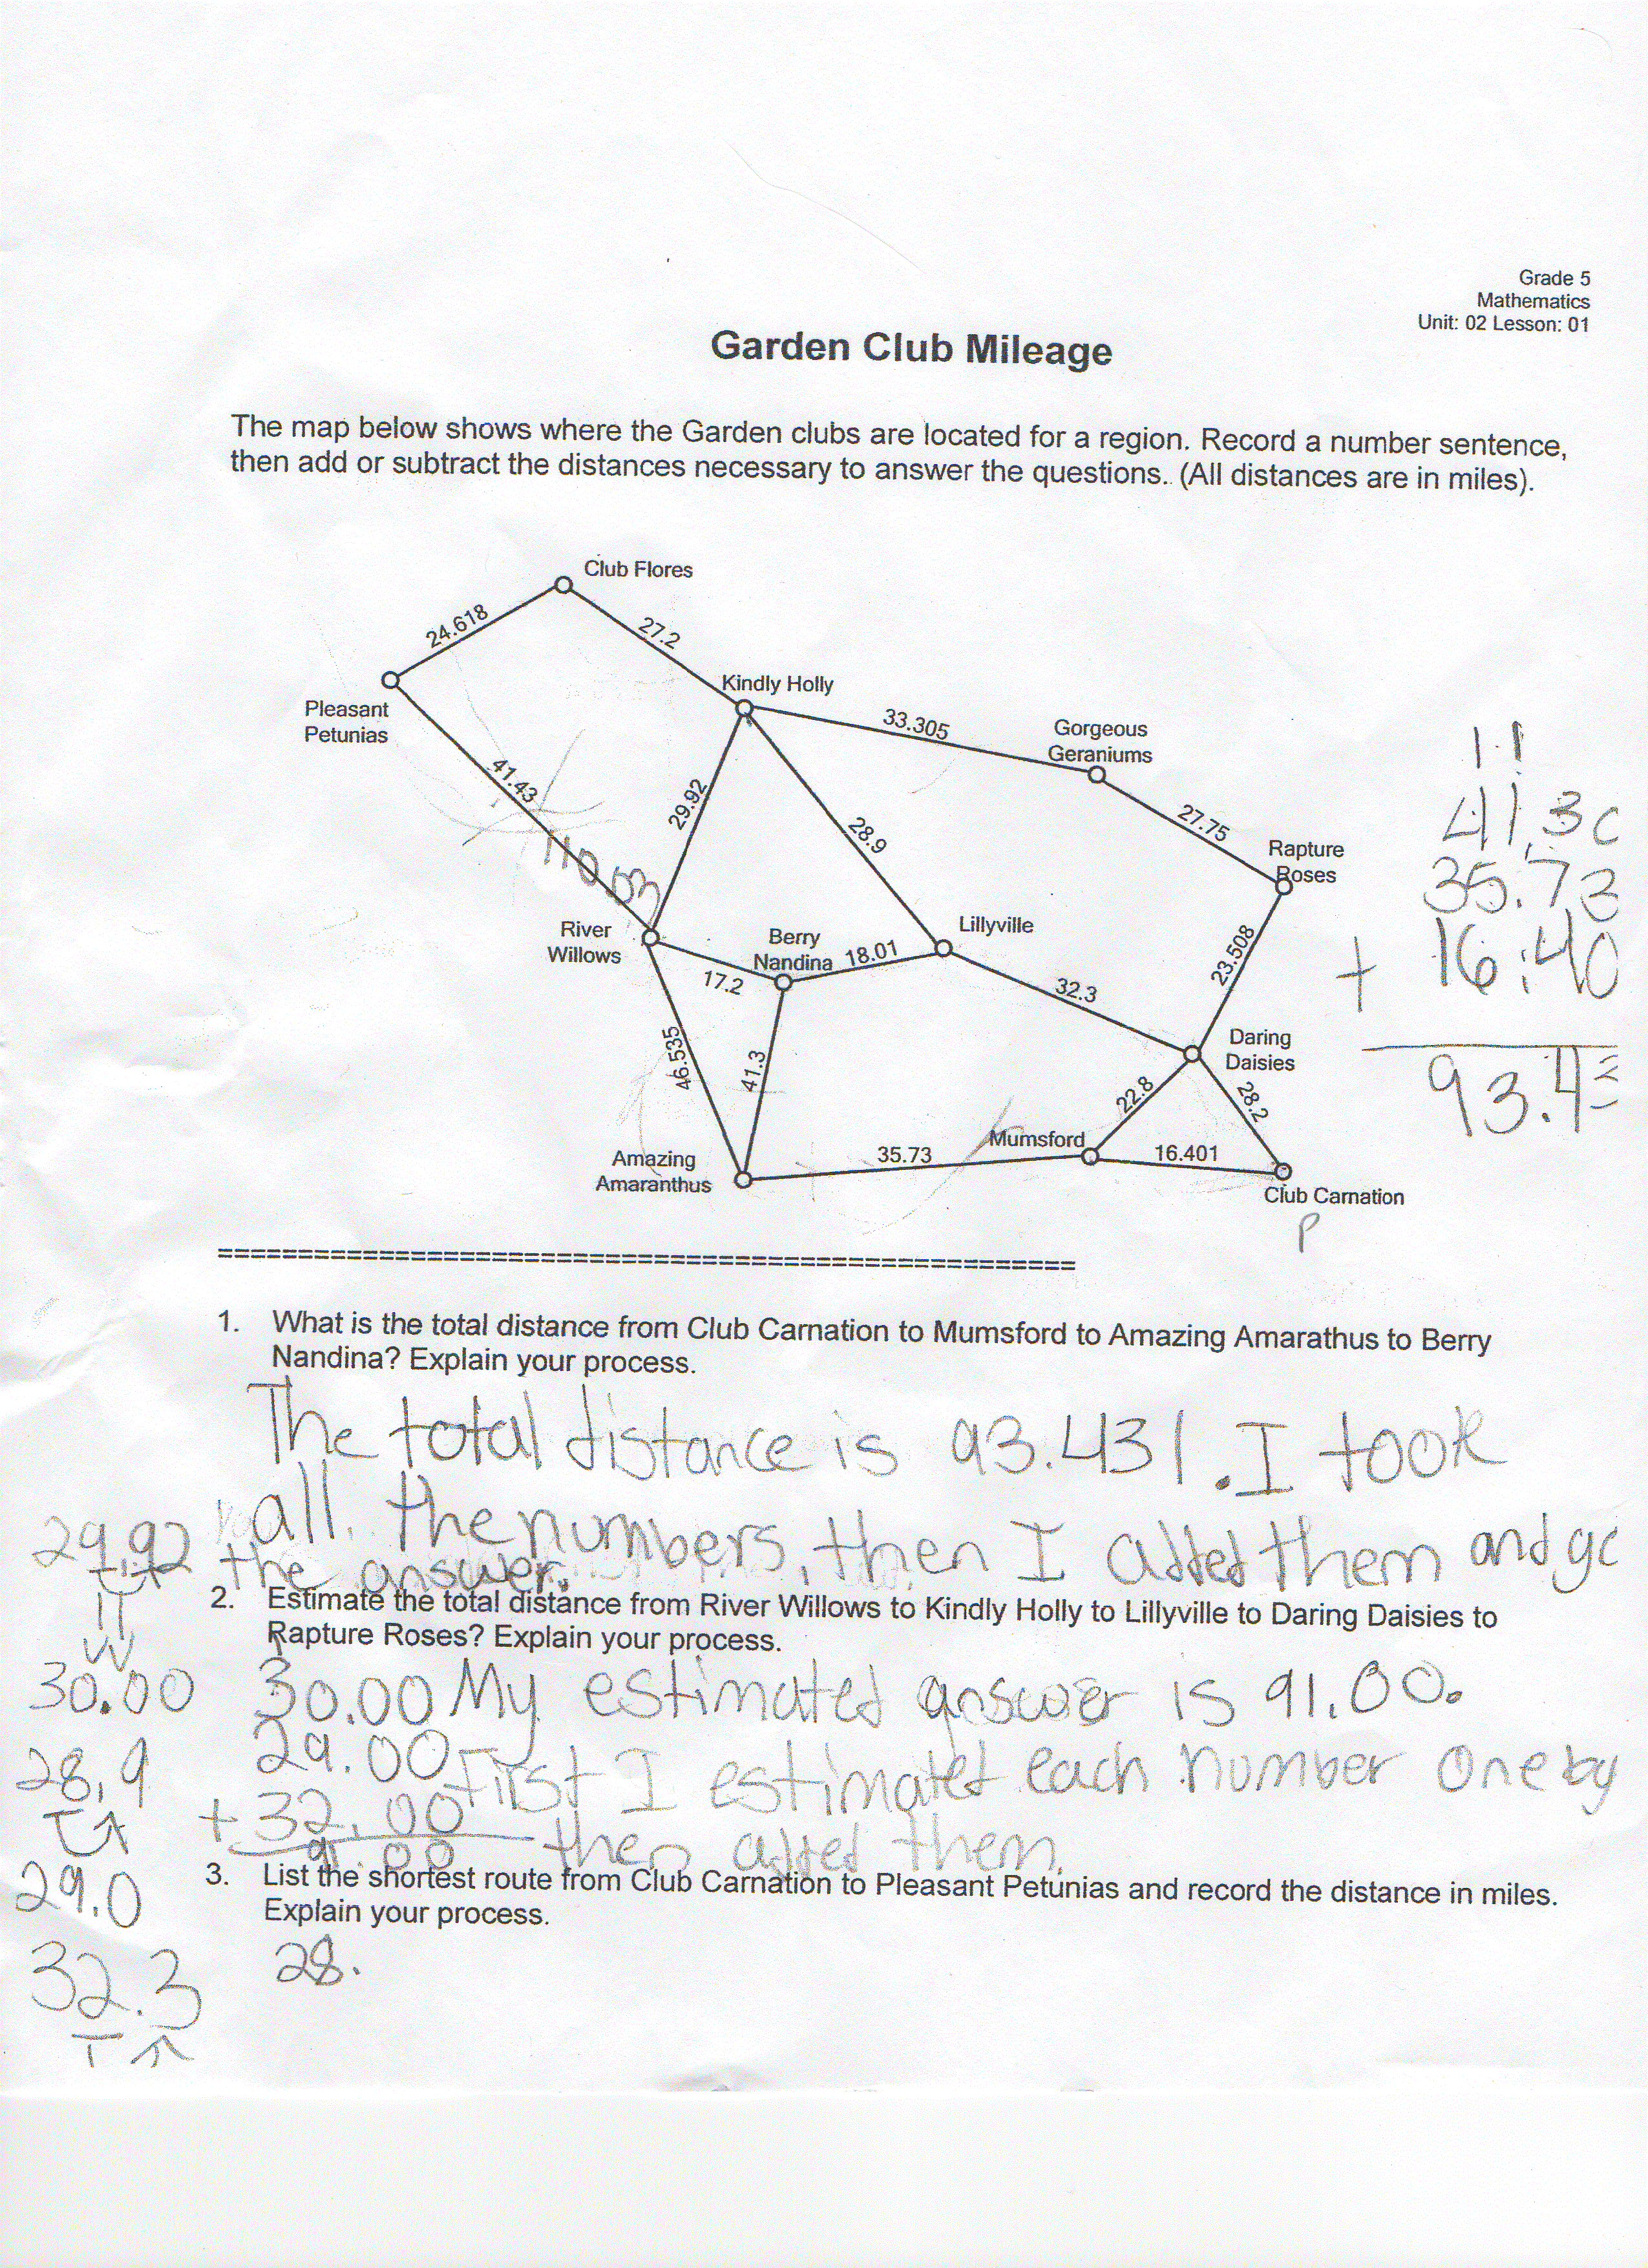 Grade 5
Mathematics
Unit: 02 Lesson: 01
Garden Club Mileage
The map below shows where the Garden clubs are located for a region. Record a number sentence,
then add or subtract the distances necessary to answer the questions. (All distances are in miles).
Club Flores
24.618
27.2
Kindly Holly
Pleasant
Petunias
33.305
Gorgeous
Geraniums
41.43
29.92
28.9
27.75
Rapture
Roses
110.03
River
Willows
Berry
Nandina
18.01
Lillyville
17.2
32.3
23.508
Daring
Daisies
46.535
41.3
22.8
28.2
Amazing
Amaranthus
35.73
Mumsford
16.401
Club Carnation
P
1 1
41.30
35.73
+ 16.40
93.43
==================================================
1. What is the total distance from Club Carnation to Mumsford to Amazing Amarathus to Berry
Nandina? Explain your process.
The total distance is 93.431. I took
all the numbers, then I added them and go
the answer.
2. Estimate the total distance from River Willows to Kindly Holly to Lillyville to Daring Daisies to
Rapture Roses? Explain your process.
30.00 My estimated answer is 91.00.
29.00 First I estimated each number one by
+ 32.00 then added them.
91.00
29.92
30.00
28.9
29.0
32.3
3. List the shortest route from Club Carnation to Pleasant Petunias and record the distance in miles.
Explain your process.
28.